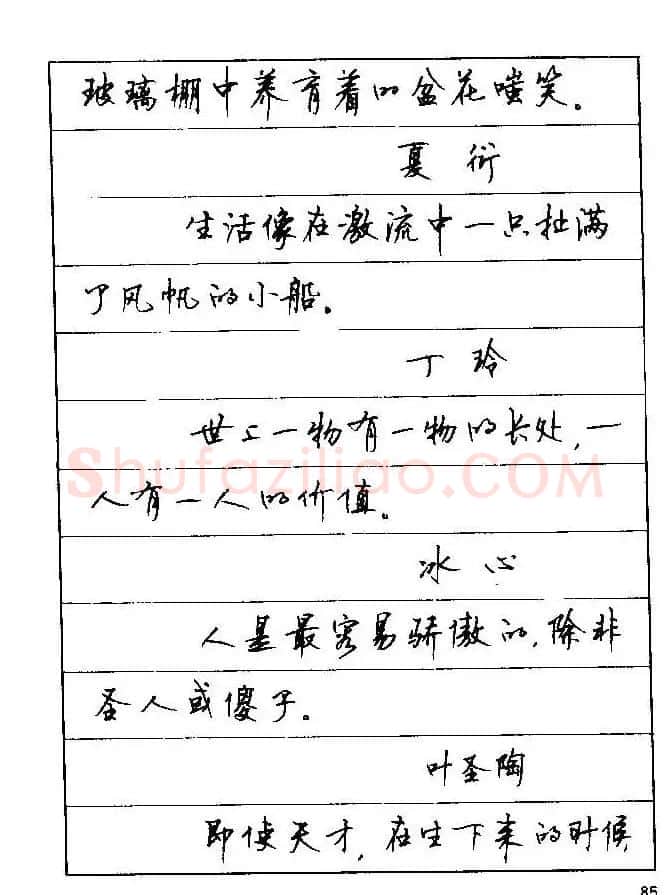 玻璃棚中养育着的盆花嗤笑。
夏衍
生活像在激流中一只扯满
了风帆的小船。
丁玲
世上一物有一物的长处,一
Shufaziliao.com
人有一人的价值。
冰心
人是最容易骄傲的,除非
圣人或傻子。
叶圣陶
即使天才,在生下来的时候
85